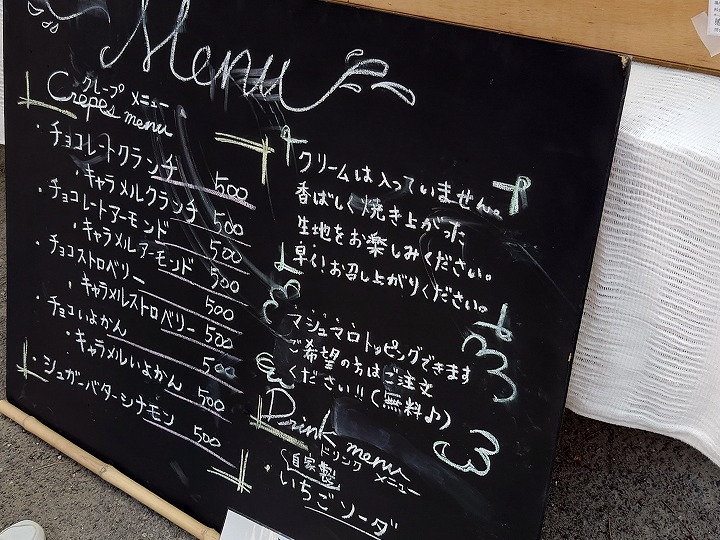 Menu
クレープ メニュー
Crepes menu
・チョコレートクランチ 500
・キャラメルクランチ 500
・チョコレートアーモンド 500
・キャラメルアーモンド 500
・チョコストロベリー 500
・キャラメルストロベリー 500
・チョコいよかん 500
・キャラメルいよかん 500
・シュガーバターシナモン 500
クリームは入っていません。
香ばしく焼き上がった
生地をお楽しみください。
早くお召し上がりください。
マシュマロトッピングできます
ご希望の方はご注文
ください!!(無料♪)
Drink menu
ドリンク メニュー
自家製
・いちごソーダ